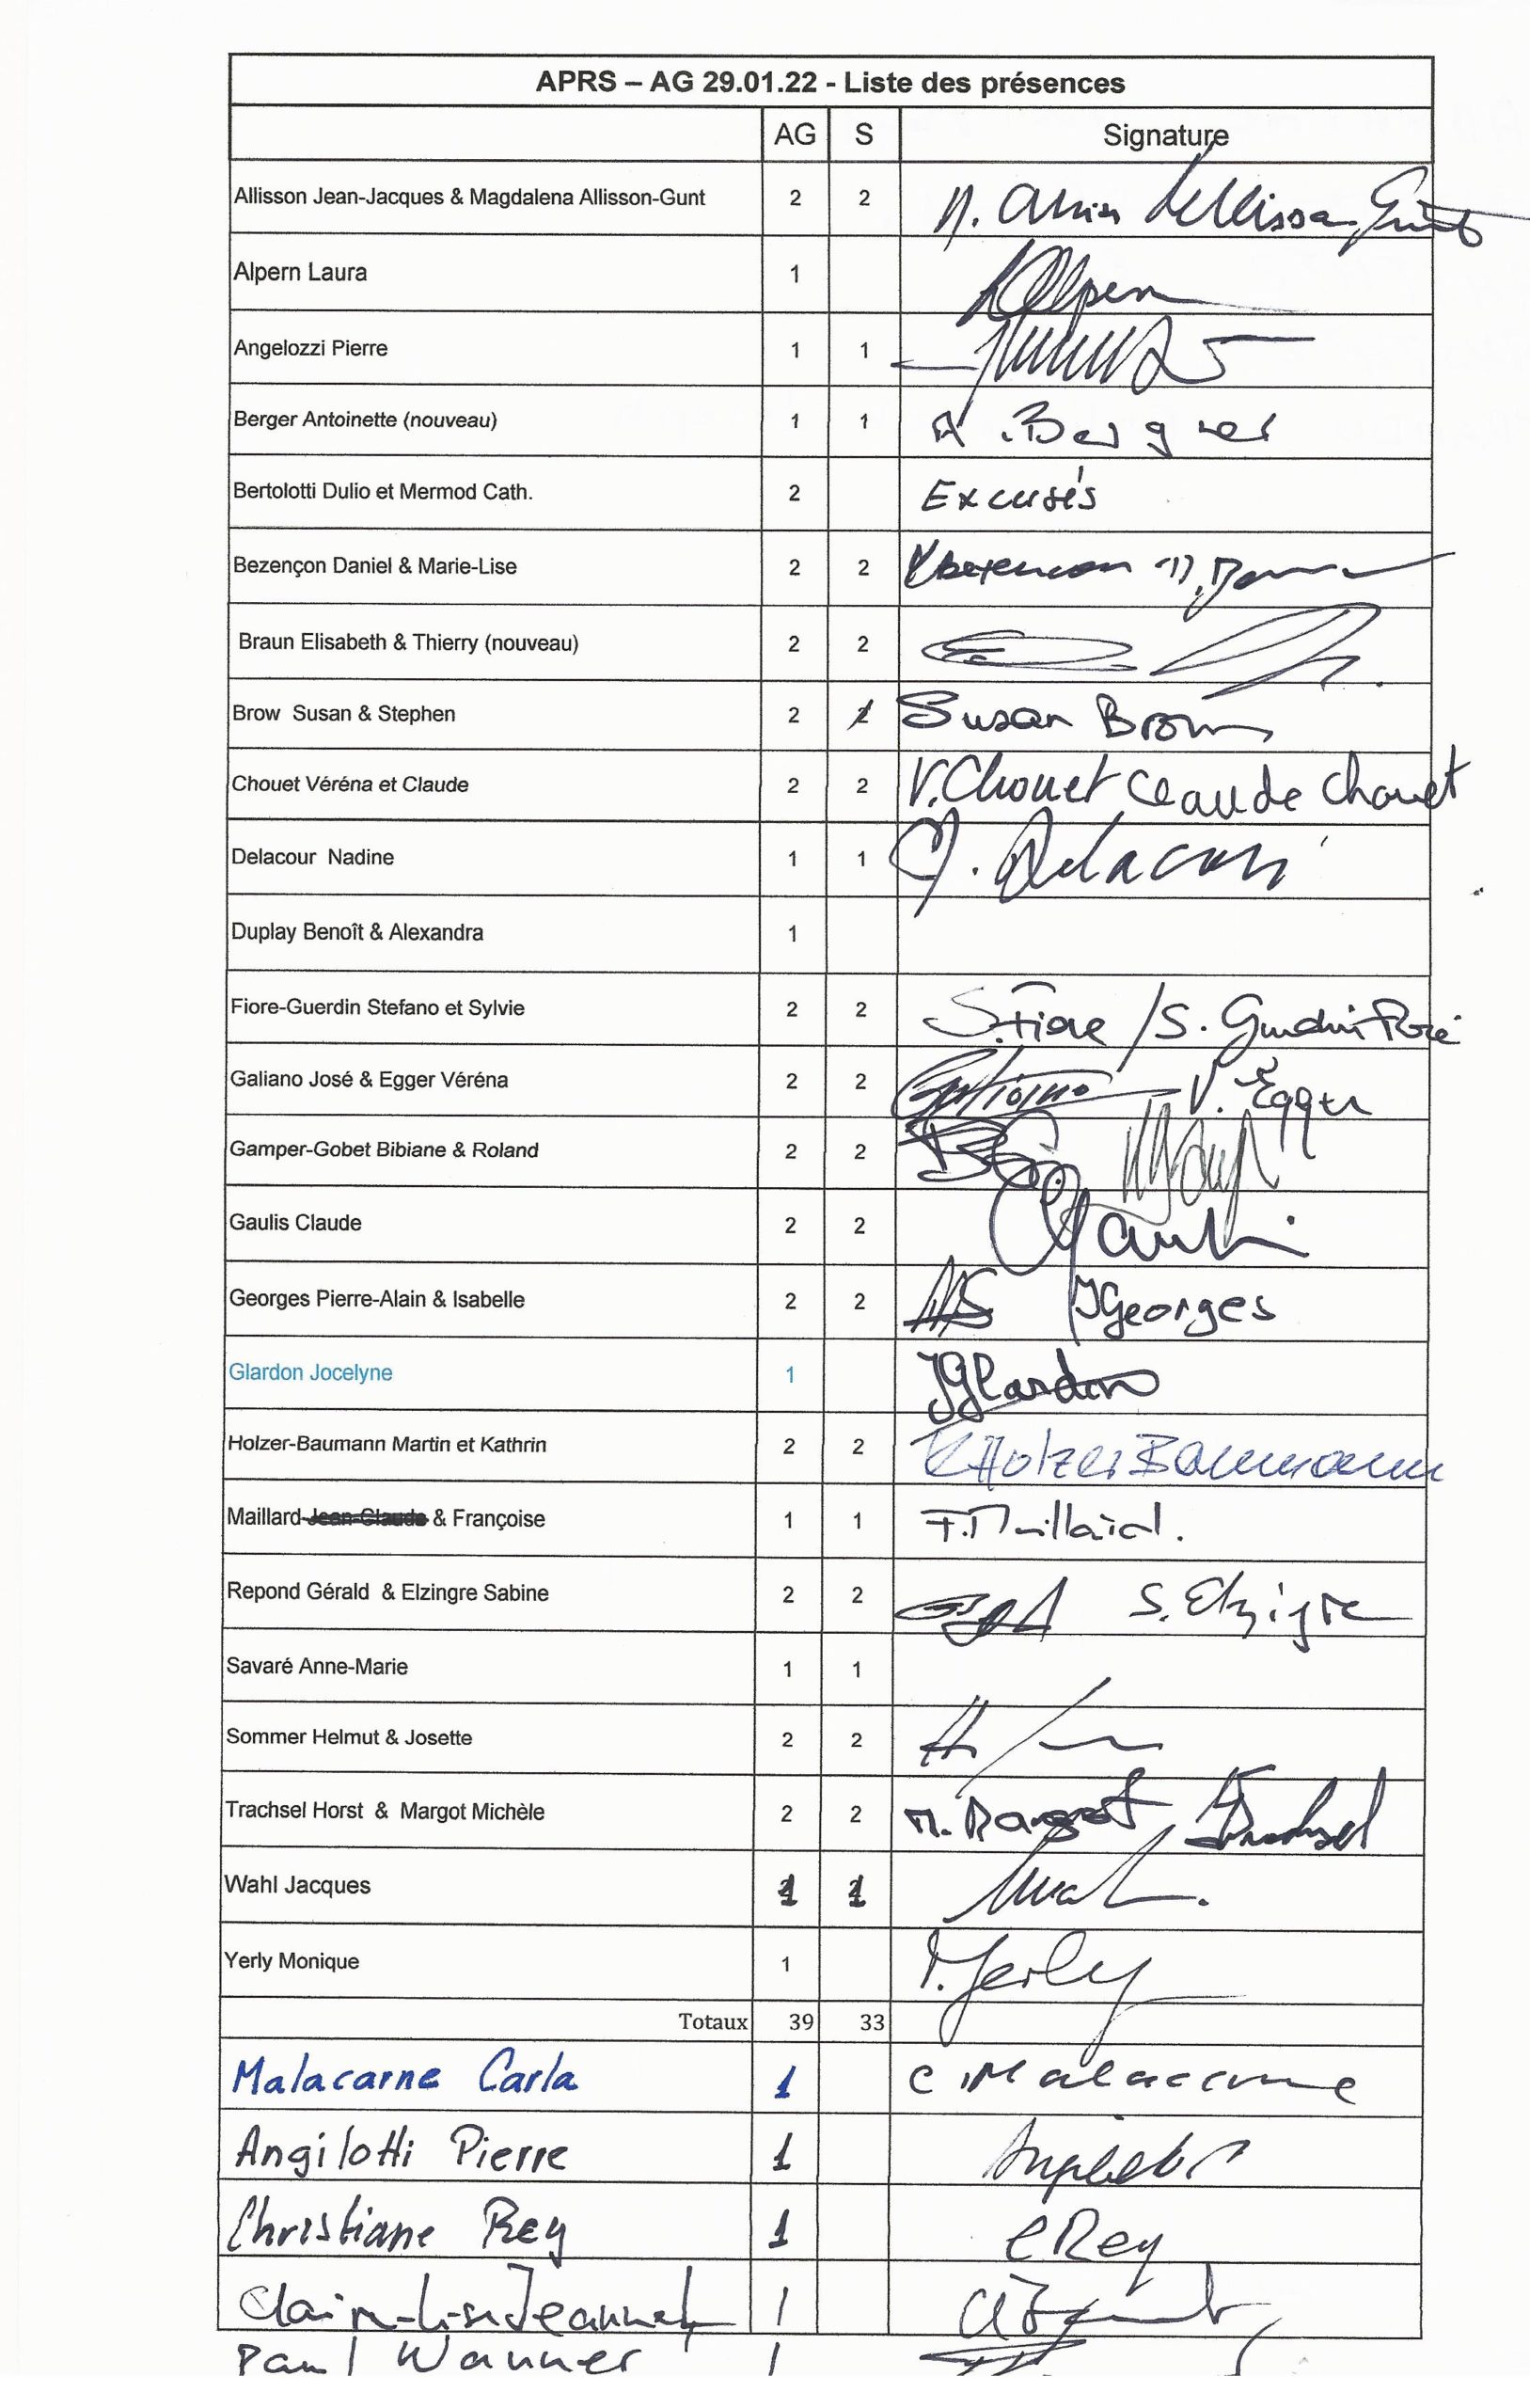 APRS – AG 29.01.22 - Liste des présences
AG S Signature
Allisson Jean-Jacques & Magdalena Allisson-Gunt 2 2
Alpern Laura 1 LAlpern
Angelozzi Pierre 1 1
Berger Antoinette (nouveau) 1 1 A. Berger
Bertolotti Dulio et Mermod Cath. 2 Excusés
Bezençon Daniel & Marie-Lise 2 2
Braun Elisabeth & Thierry (nouveau) 2 2
Brow Susan & Stephen 2 2 Susan Brown
Chouet Véréna et Claude 2 2 V. Chouet Claude Chouet
Delacour Nadine 1 1
Duplay Benoît & Alexandra 1
Fiore-Guerdin Stefano et Sylvie 2 2 S. Fiore / S.
Galiano José & Egger Véréna 2 2 V. Egger
Gamper-Gobet Bibiane & Roland 2 2
Gaulis Claude 2 2
Georges Pierre-Alain & Isabelle 2 2 IGeorges
Glardon Jocelyne 1 JGlardon
Holzer-Baumann Martin et Kathrin 2 2 KHolzer Baumann
Maillard Jean-Claude & Françoise 1 1 F. Maillard.
Repond Gérald & Elzingre Sabine 2 2 S. Elzingre
Savaré Anne-Marie 1 1
Sommer Helmut & Josette 2 2
Trachsel Horst & Margot Michèle 2 2 M. Margot Trachsel
Wahl Jacques 1 1
Yerly Monique 1 M. Yerly
Totaux 39 33
Malacarne Carla 1 C. Malacarne
Angilotti Pierre 1
Christiane Rey 1 CRey
Claire-Lise Jeannet 1
Paul Wanner 1